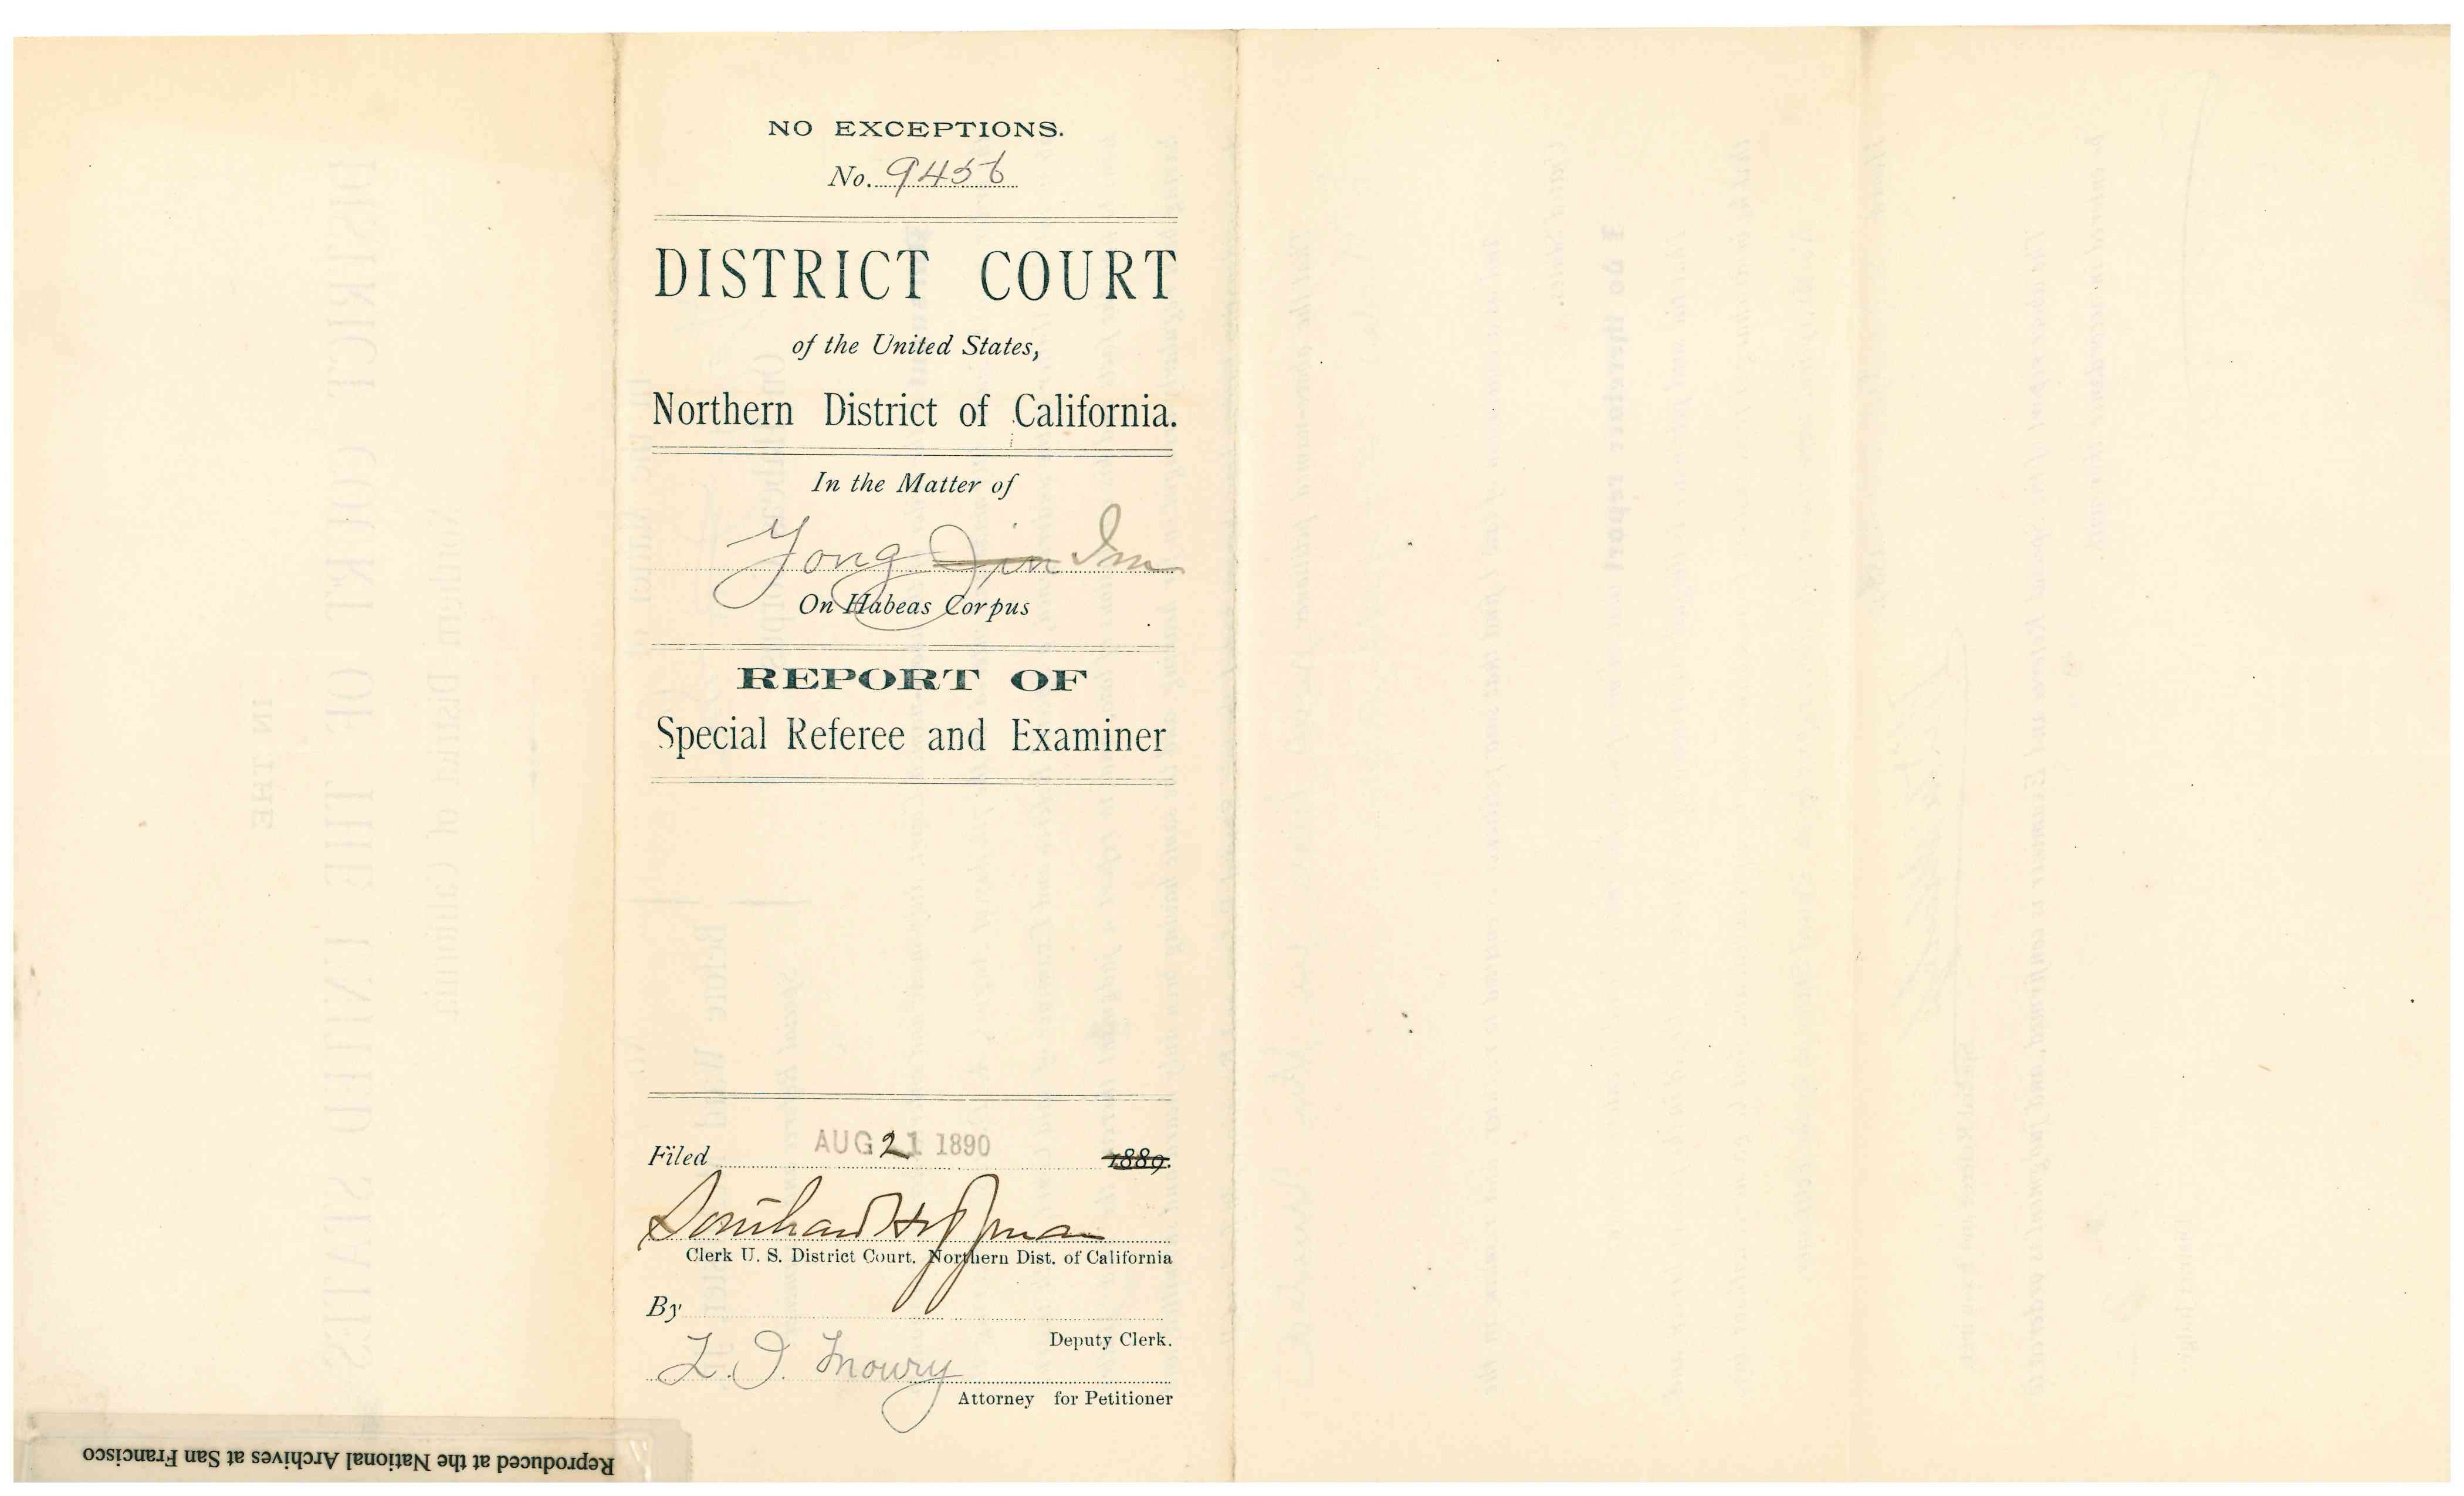 NO EXCEPTIONS.
No. 9456
DISTRICT COURT
of the United States,
Northern District of California.
In the Matter of
Yong Jin Im
On Habeas Corpus
REPORT OF
Special Referee and Examiner
Filed AUG 21 1890 1889.
Southard Hoffman
Clerk U. S. District Court. Northern Dist. of California
By
Deputy Clerk.
L. I. Mowry
Attorney for Petitioner
Reproduced at the National Archives at San Francisco